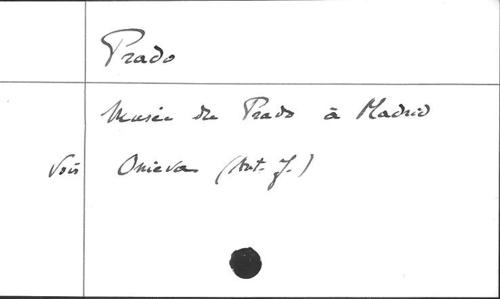 Prado
Musée du Prado à Madrid
Voir Onieva (Ant. J.)